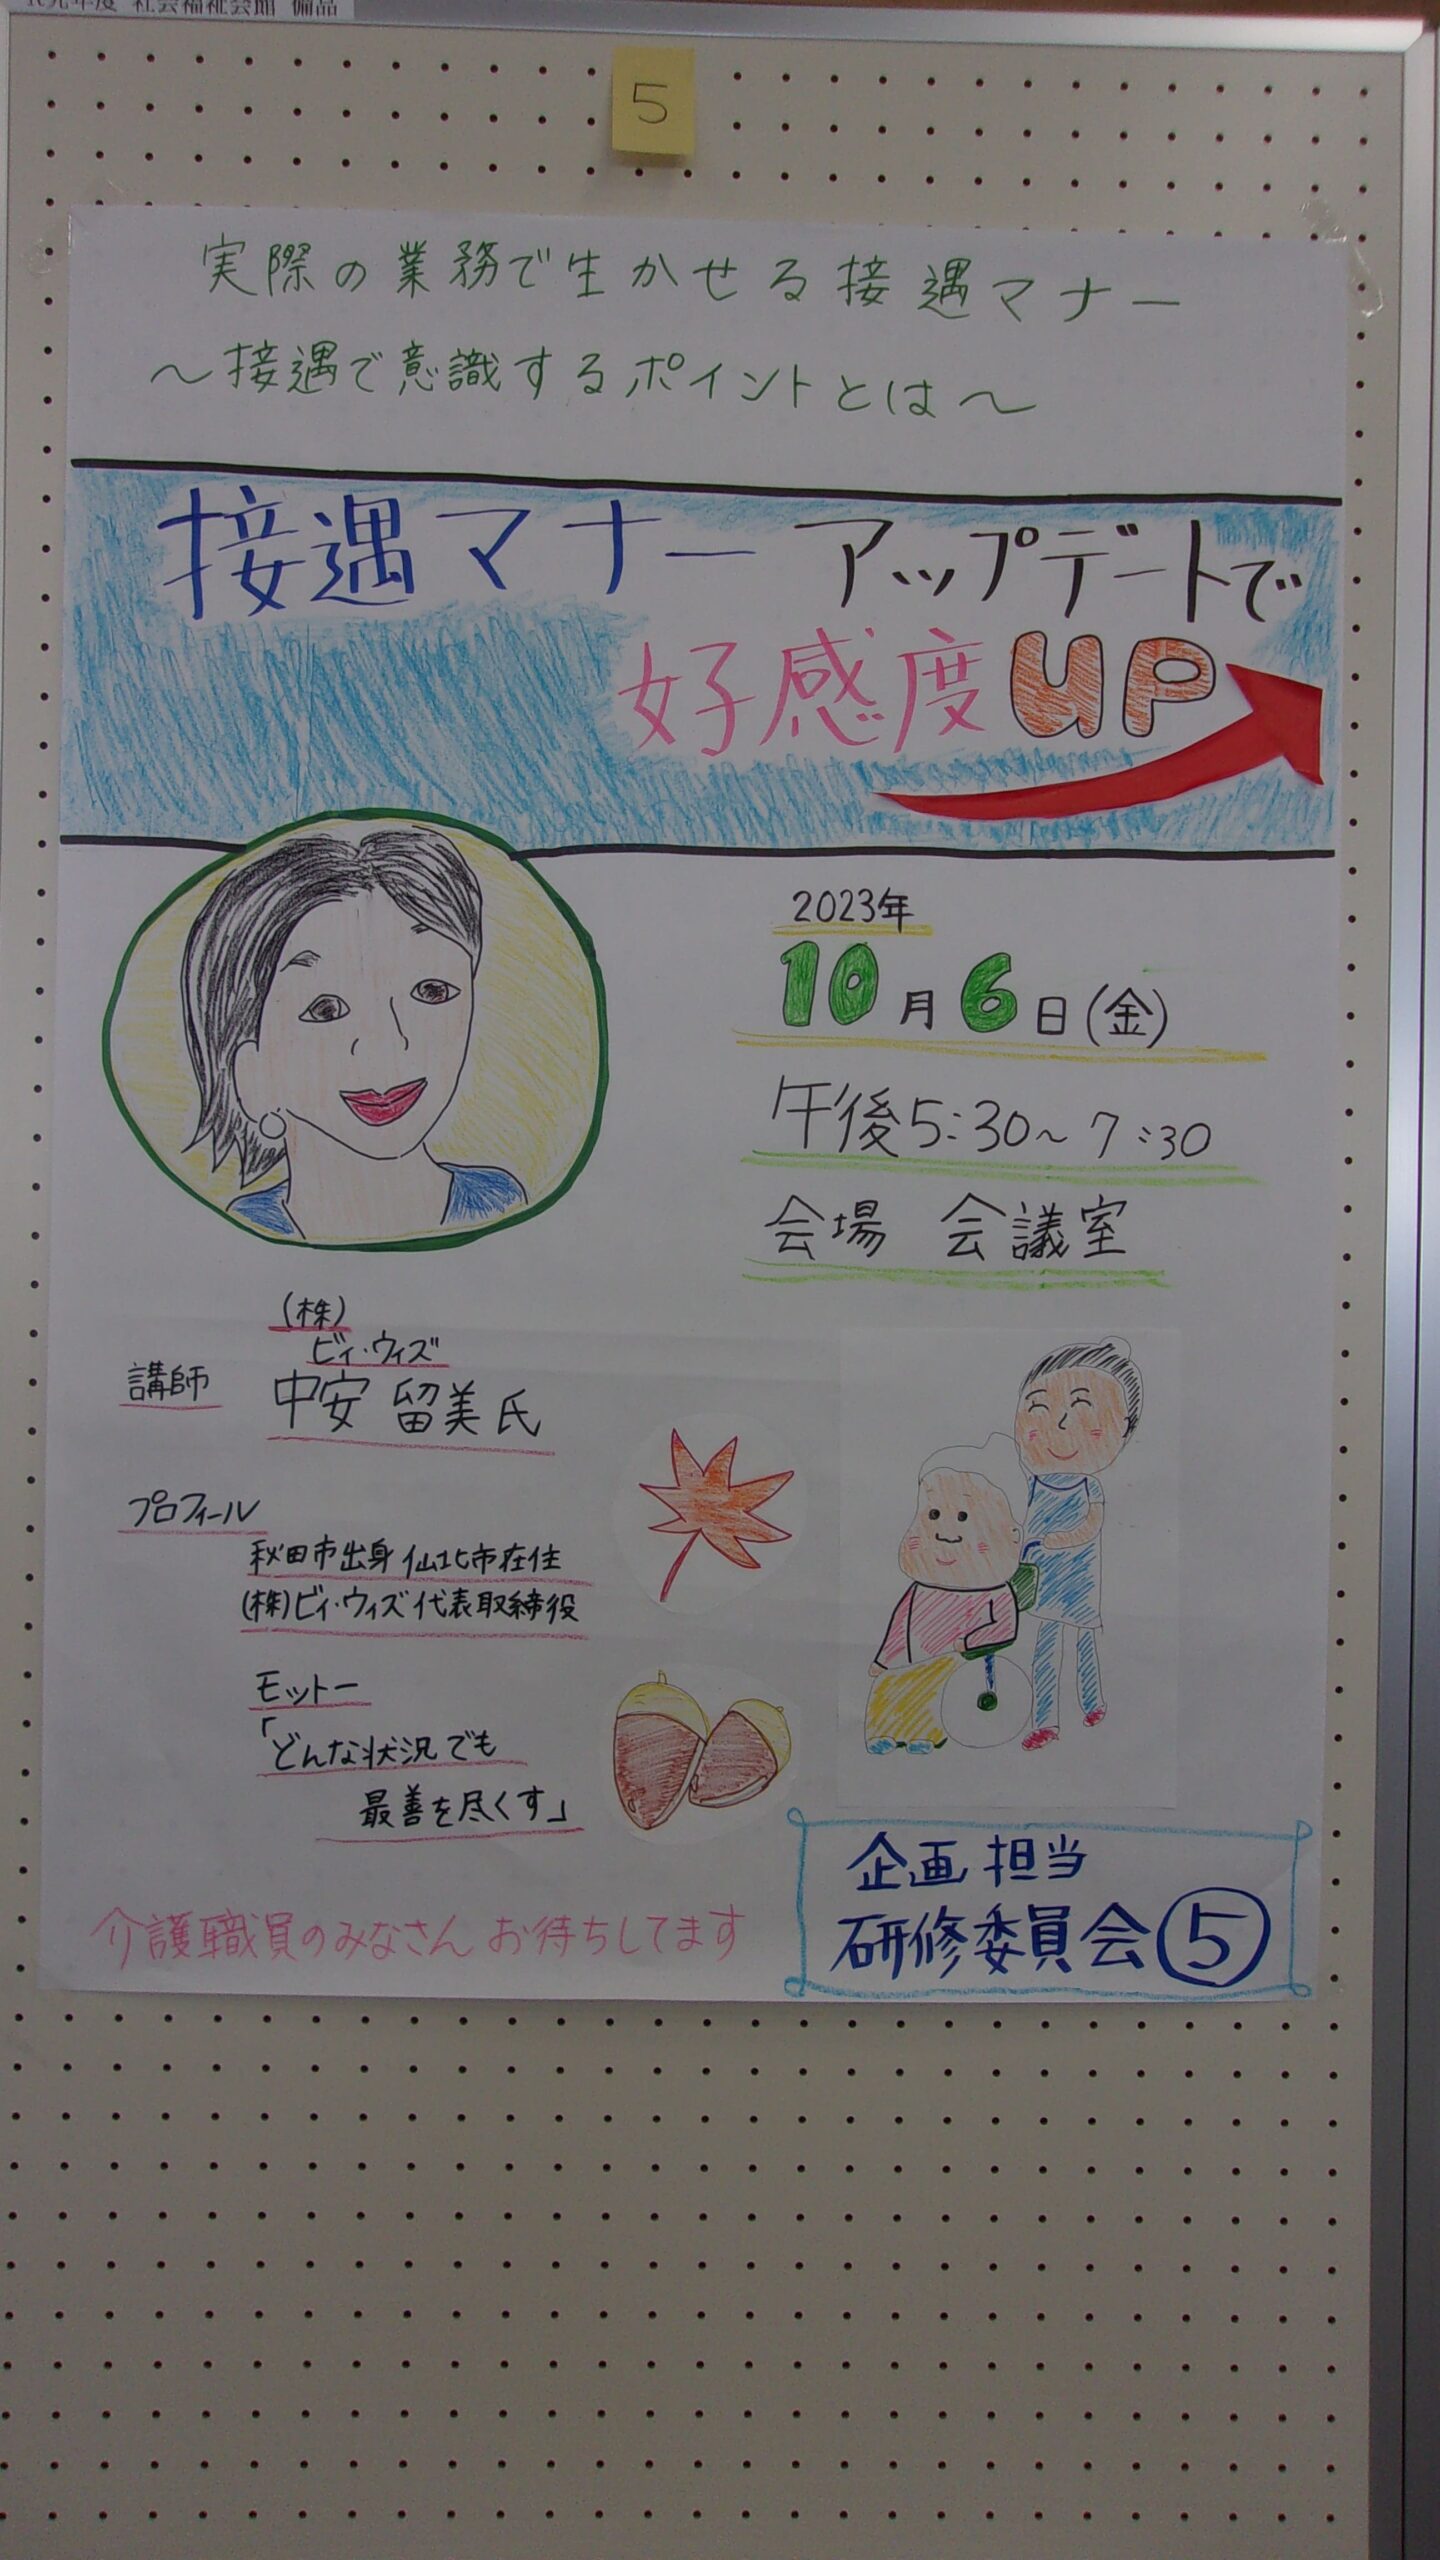 R元年度 社会福祉会館 備品
5
実際の業務で生かせる接遇マナー
～接遇で意識するポイントとは～
接遇マナー アップデートで
好感度UP
2023年
10月6日(金)
午後5:30～7:30
会場 会議室
(株)
ビィ・ウィズ
講師 中安 留美氏
プロフィール
秋田市出身 仙北市在住
(株)ビィ・ウィズ代表取締役
モットー
「どんな状況でも
最善を尽くす」
介護職員のみなさん お待ちしてます
企画担当
研修委員会⑤